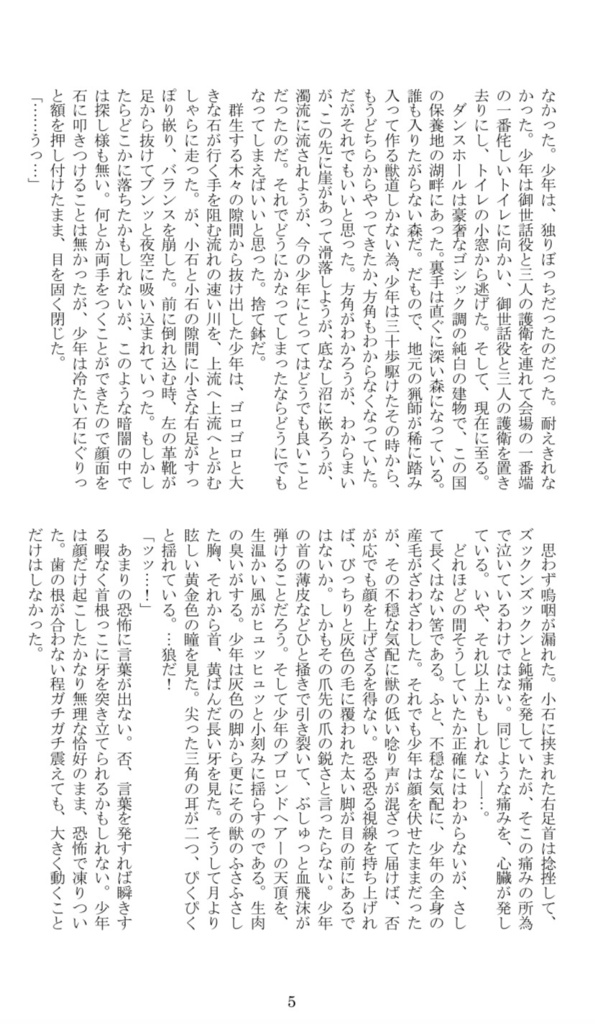 なかった。少年は、独りぼっちだったのだった。耐えきれな
かった。少年は御世話役と三人の護衛を連れて会場の一番端
の一番侘しいトイレに向かい、御世話役と三人の護衛を置き
去りにし、トイレの小窓から逃げた。そして、現在に至る。
ダンスホールは豪奢なゴシック調の純白の建物で、この国
の保養地の湖畔にあった。裏手は直ぐに深い森になっている。
誰も入りたがらない森だ。だもので、地元の猟師が稀に踏み
入って作る獣道しかない為、少年は三十歩駆けたその時から、
もうどちらからやってきたか、方角もわからなくなっていた。
だがそれでもいいと思った。方角がわかろうが、わからまい
が、この先に崖があって滑落しようが、底なし沼に嵌ろうが、
濁流に流されようが、今の少年にとってはどうでも良いこと
だったのだ。それでどうにかなってしまったならどうにでも
なってしまえばいいと思った。捨て鉢だ。
群生する木々の隙間から抜け出した少年は、ゴロゴロと大
きな石が行く手を阻む流れの速い川を、上流へ上流へとがむ
しゃらに走った。が、小石と小石の隙間に小さな右足がすっ
ぽり嵌り、バランスを崩した。前に倒れ込む時、左の革靴が
足から抜けてブンッと夜空に吸い込まれていった。もしかし
たらどこかに落ちたかもしれないが、このような暗闇の中で
は探し様も無い。何とか両手をつくことができたので顔面を
石に叩きつけることは無かったが、少年は冷たい石にぐりっ
と額を押し付けたまま、目を固く閉じた。
「……うっ…」
思わず嗚咽が漏れた。小石に挟まれた右足首は捻挫して、
ズックンズックンと鈍痛を発していたが、そこの痛みの所為
で泣いているわけではない。同じような痛みを、心臓が発し
ている。いや、それ以上かもしれない――。
どれほどの間そうしていたか正確にはわからないが、さし
て長くはない筈である。ふと、不穏な気配に、少年の全身の
産毛がざわざわした。それでも少年は顔を伏せたままだった
が、その不穏な気配に獣の低い唸り声が混ざって届けば、否
が応でも顔を上げざるを得ない。恐る恐る視線を持ち上げれ
ば、びっちりと灰色の毛に覆われた太い脚が目の前にあるで
はないか。しかもその爪先の爪の鋭さと言ったらない。少年
の首の薄皮などひと掻きで引き裂いて、ぶしゅっと血飛沫が
弾けることだろう。そして少年のブロンドヘアーの天頂を、
生温かい風がヒュッヒュッと小刻みに揺らすのである。生肉
の臭いがする。少年は灰色の脚から更にその獣のふさふさし
た胸、それから首、黄ばんだ長い牙を見た。そうして月より
眩しい黄金色の瞳を見た。尖った三角の耳が二つ、ぴくぴく
と揺れている。…狼だ！
「ッッ…！」
あまりの恐怖に言葉が出ない。否、言葉を発すれば瞬きす
る暇なく首根っこに牙を突き立てられるかもしれない。少年
は顔だけ起こしたかなり無理な恰好のまま、恐怖で凍りつい
た。歯の根が合わない程ガチガチ震えても、大きく動くこと
だけはしなかった。
5